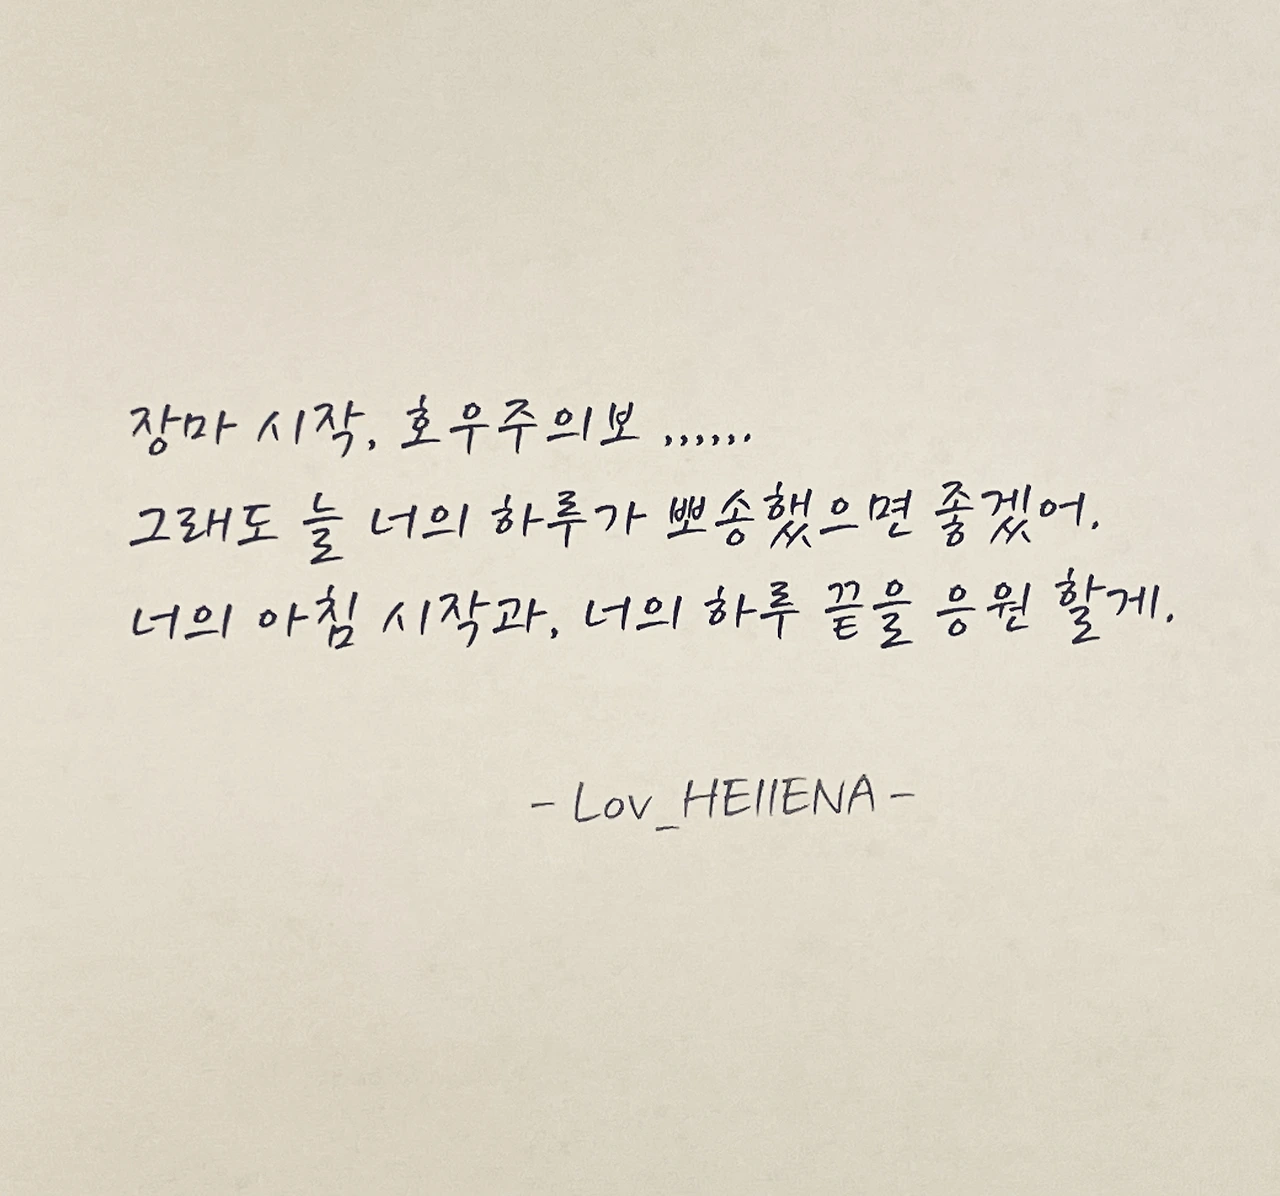 장마 시작, 호우주의보 ,,,,,.
그래도 늘 너의 하루가 뽀송했으면 좋겠어.
너의 아침 시작과, 너의 하루 끝을 응원 할게.
- Lov_HEllENA -